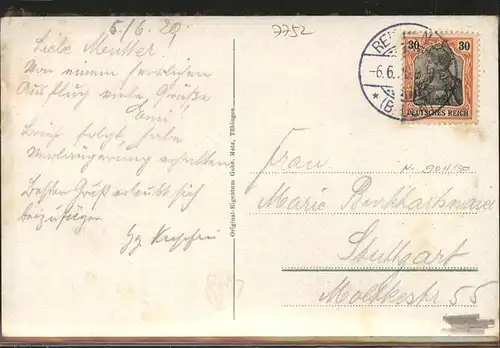 5/6.20.
7752
Liebe Mutter
Von einem herrlichen
Ausflug viele Grüße,
Emi
Brief folgt, habe
Verlängerung erhalten
Besten Gruß erlaubt sich
beizufügen
Original-Eigentum Gebr. Metz, Tübingen
30 30
DEUTSCHES REICH
-6.6.
Frau
Marie
Stuttgart
Moltkestr 55